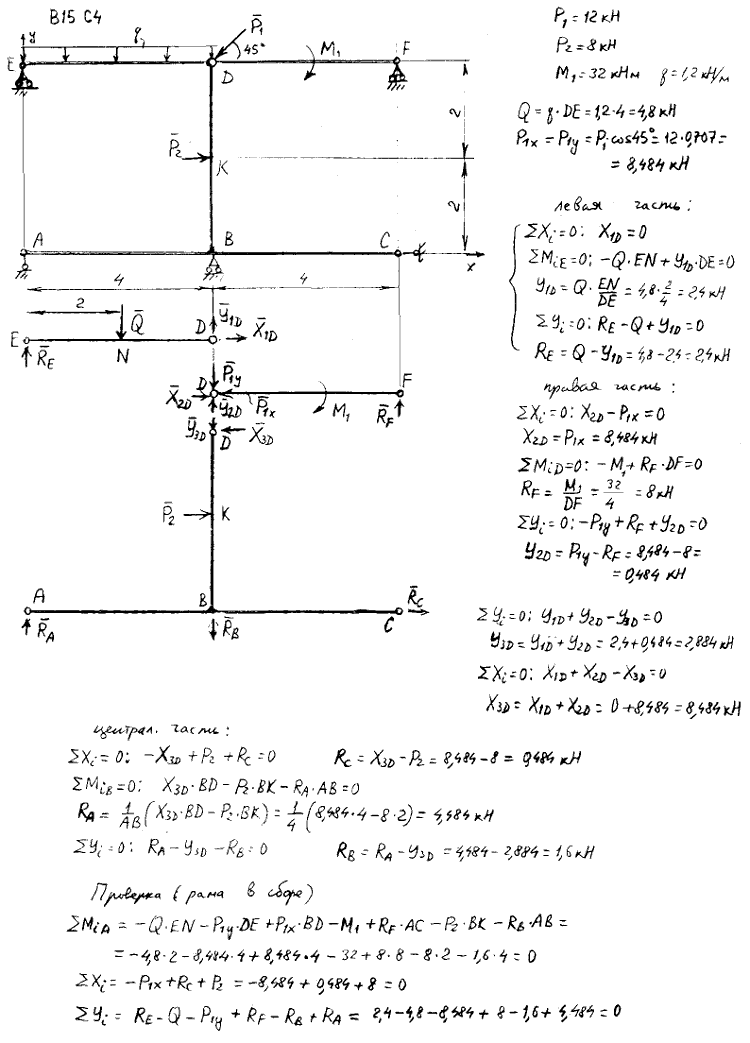 B15 C4
y
q
P̄₁
45°
M₁
E
D
F
P̄₂
K
2
2
A
B
C
x
4
4
2
Q̄
Ȳ1D
D
X̄1D
E
R̄E
N
P̄1y
D
F
X̄2D
Ȳ2D
P̄1x
M₁
R̄F
Ȳ3D
D
X̄3D
P̄₂
K
A
B
R̄C
R̄A
R̄B
C
P₁ = 12 кН
P₂ = 8 кН
M₁ = 32 кНм q = 1,2 кН/м
Q = q·DE = 1,2·4 = 4,8 кН
P1x = P1y = P₁cos45° = 12·0,707 =
= 8,484 кН
левая часть:
ΣXi = 0: X1D = 0
ΣMiE = 0: -Q·EN + Y1D·DE = 0
Y1D = Q·EN/DE = 4,8·2/4 = 2,4 кН
ΣYi = 0: RE - Q + Y1D = 0
RE = Q - Y1D = 4,8 - 2,4 = 2,4 кН
правая часть:
ΣXi = 0: X2D - P1x = 0
X2D = P1x = 8,484 кН
ΣMiD = 0: -M₁ + RF·DF = 0
RF = M₁/DF = 32/4 = 8 кН
ΣYi = 0: -P1y + RF + Y2D = 0
Y2D = P1y - RF = 8,484 - 8 =
= 0,484 кН
ΣYi = 0: Y1D + Y2D - Y3D = 0
Y3D = Y1D + Y2D = 2,4 + 0,484 = 2,884 кН
ΣXi = 0: X1D + X2D - X3D = 0
X3D = X1D + X2D = 0 + 8,484 = 8,484 кН
централ. часть:
ΣXi = 0: -X3D + P₂ + RC = 0 RC = X3D - P₂ = 8,484 - 8 = 0,484 кН
ΣMiB = 0: X3D·BD - P₂·BK - RA·AB = 0
RA = 1/AB (X3D·BD - P₂·BK) = 1/4 (8,484·4 - 8·2) = 4,484 кН
ΣYi = 0: RA - Y3D - RB = 0 RB = RA - Y3D = 4,484 - 2,884 = 1,6 кН
Проверка (рама в сборе)
ΣMiA = -Q·EN - P1y·DE + P1x·BD - M₁ + RF·AC - P₂·BK - RB·AB =
= -4,8·2 - 8,484·4 + 8,484·4 - 32 + 8·8 - 8·2 - 1,6·4 = 0
ΣXi = -P1x + RC + P₂ = -8,484 + 0,484 + 8 = 0
ΣYi = RE - Q - P1y + RF - RB + RA = 2,4 - 4,8 - 8,484 + 8 - 1,6 + 4,484 = 0